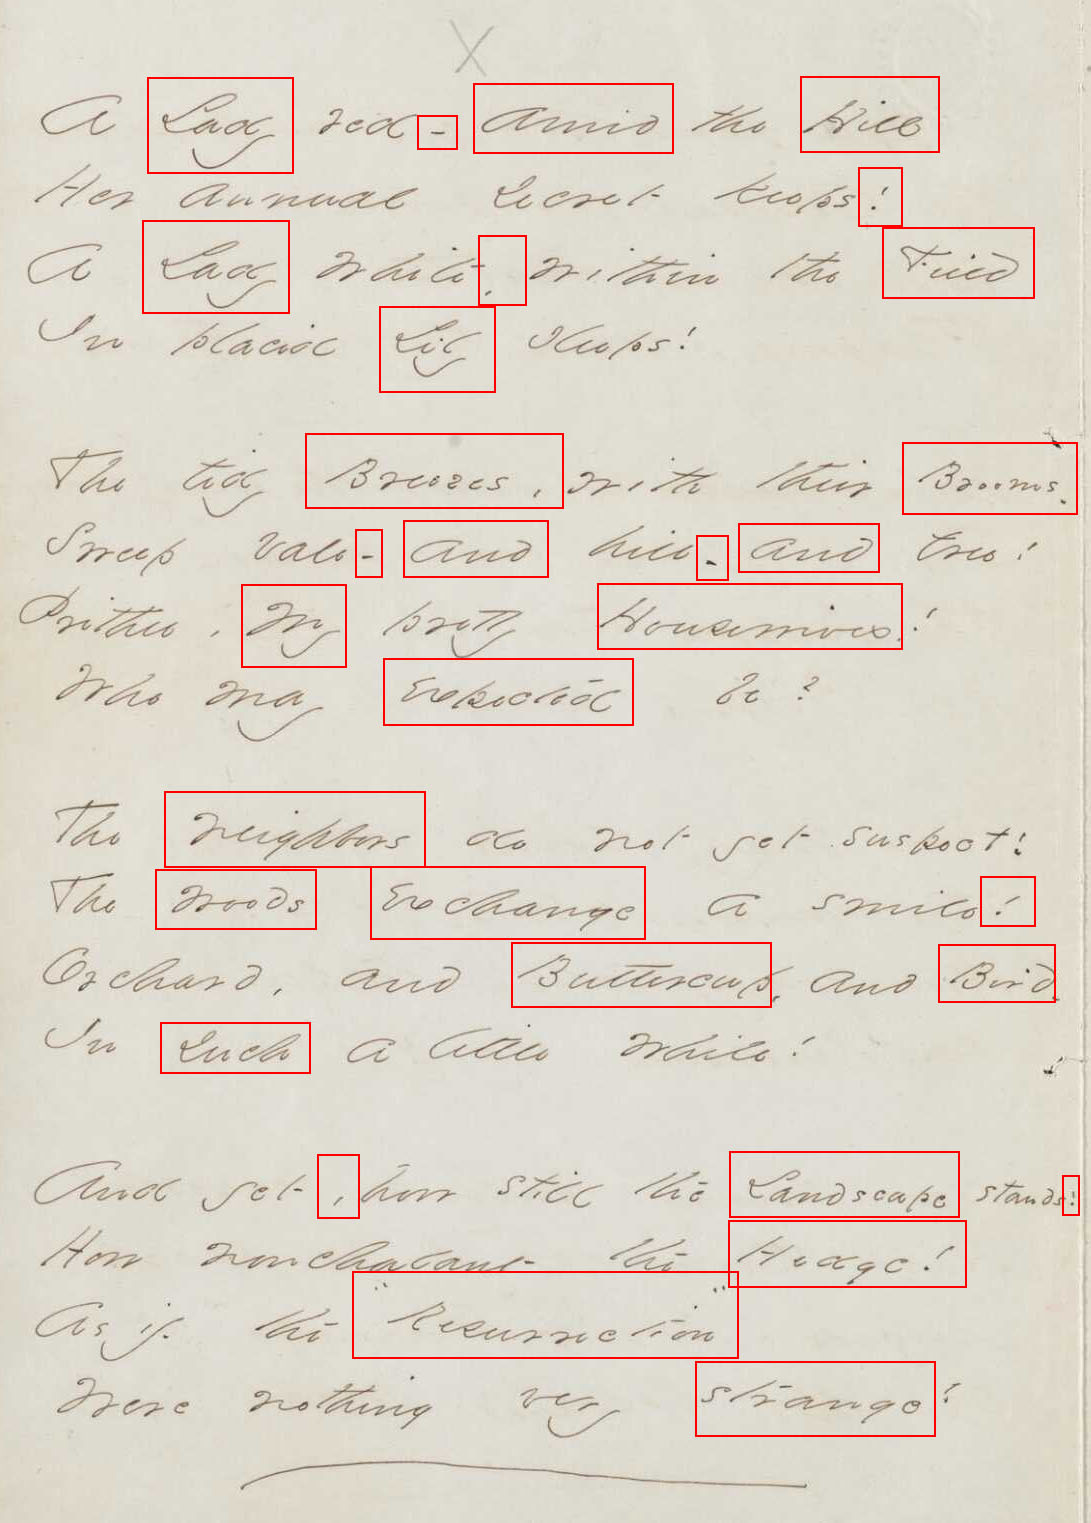 X
A Lady red - Amid the Hill
Her annual secret keeps!
A Lady white, within the Field
In placid Lily sleeps!
The tidy Breezes, with their Brooms,
Sweep vale - and hill - and tree!
Prithee, my pretty Housewives!
Who may Expected be?
The neighbors do not yet suspect!
The woods Exchange a smile!
Orchard, and Buttercup, and Bird,
In such a little while!
And yet, how still the Landscape stands!
How nonchalant the Hedge!
As if the "Resurrection"
Were nothing very strange!